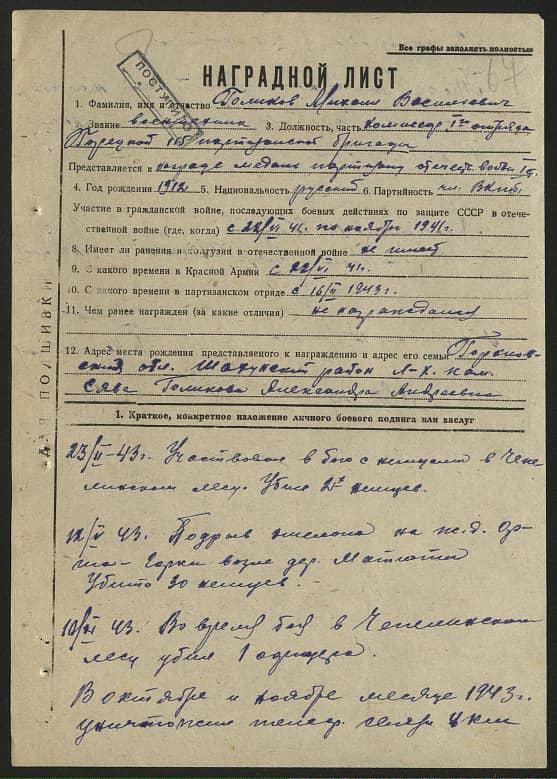 Все графы заполнять полностью
67
НАГРАДНОЙ ЛИСТ
1. Фамилия, имя и отчество Голиков Михаил Васильевич
2. Звание воентехник 3. Должность, часть Комиссар 1го отряда
партизанской бригады
Представляется к награде медаль партизану отечеств. войны I ст.
4. Год рождения 1912 5. Национальность русский 6. Партийность чл. ВКПб.
Участие в гражданской войне, последующих боевых действиях по защите СССР в отече-
ственной войне (где, когда) с 22/VI 41. по ноябрь 1941г.
8. Имеет ли ранения и контузии в отечественной войне не имеет
9. С какого времени в Красной Армии с 22/VI 41г.
10. С какого времени в партизанском отряде с 16/II 1943г.
11. Чем ранее награжден (за какие отличия) не награждался
12. Адрес места рождения представляемого к награждению и адрес его семьи Горьков-
ская обл. Шахунский район
Сява Голикова Александра Андреевна
ДЛЯ ПОДШИВКИ
1. Краткое, конкретное изложение личного боевого подвига или заслуг
23/II-43г. Участвовал в бою с немцами в Чепе-
линском лесу. Убил 2х немцев.
12/V 43. Подрыв эшелона на ж.д. Ор-
ша-Горки возле дер.
Убито 30 немцев.
12/VI 43. Во время боя в Чепелинском
лесу убил 1 офицера.
В октябре и ноябре месяце 1943г.
уничтожил телеф. связи 4 км